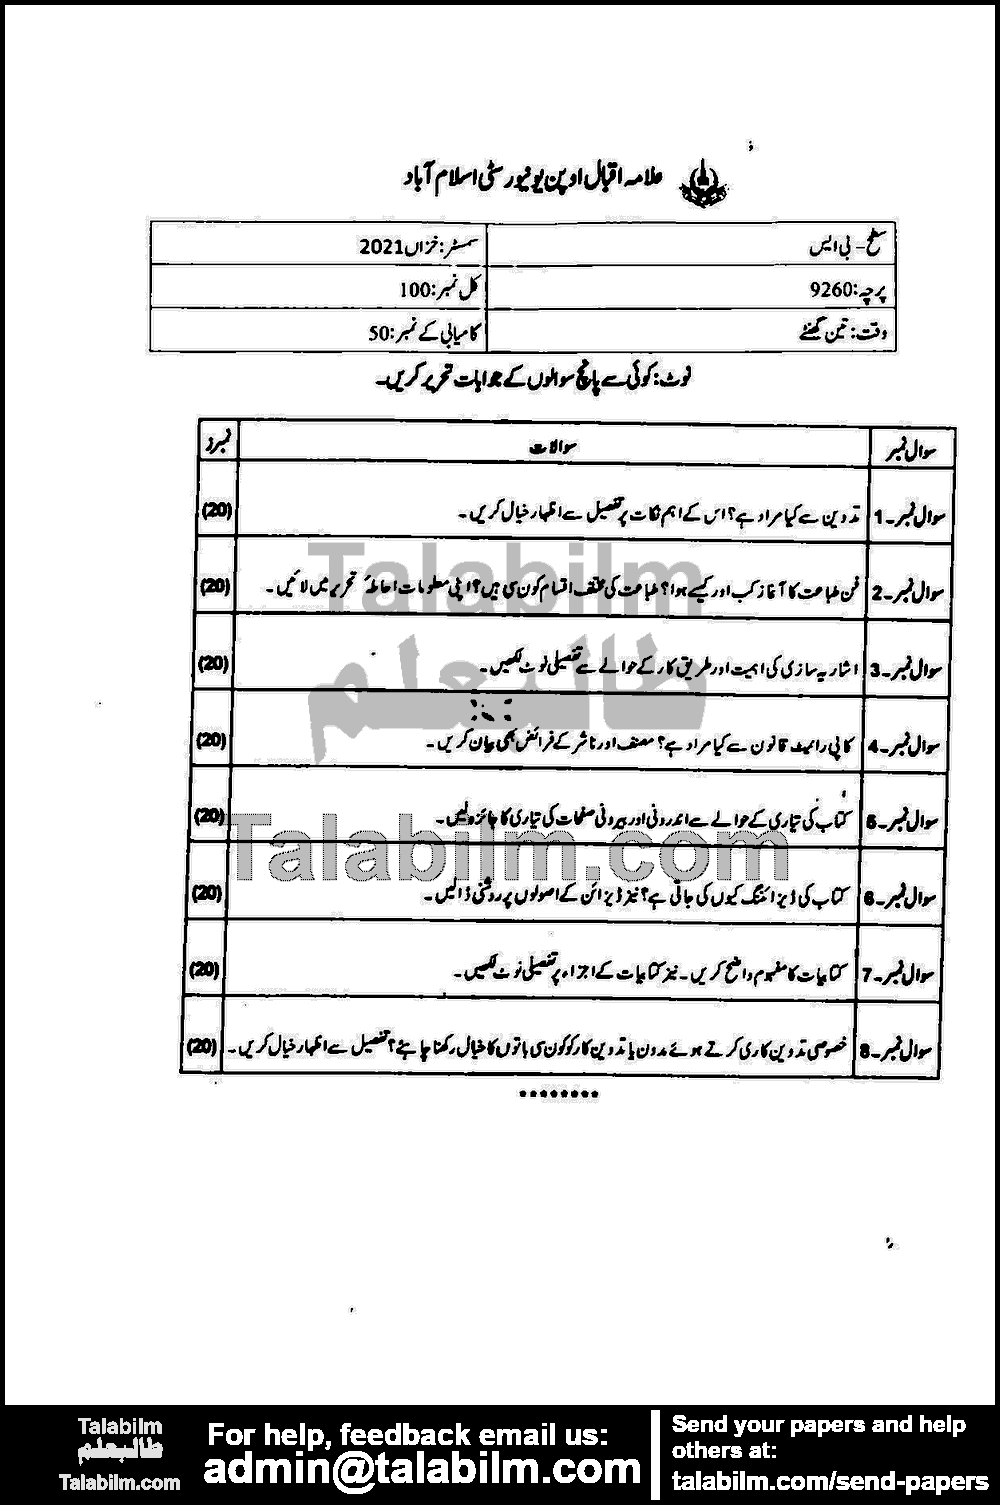 علامہ اقبال اوپن یونیورسٹی اسلام آباد
سطح - بی ایس
سمسٹر: خزاں 2021
پرچہ: 9260
کل نمبر: 100
وقت: تین گھنٹے
کامیابی کے نمبر: 50
نوٹ: کوئی سے پانچ سوالوں کے جوابات تحریر کریں۔
سوال نمبر سوالات نمبرز
سوال نمبر۔1 تدوین سے کیا مراد ہے؟ اس کے اہم نکات پر تفصیل سے اظہار خیال کریں۔ (20)
سوال نمبر۔2 فن طباعت کا آغاز کب اور کیسے ہوا؟ طباعت کی مختلف اقسام کون سی ہیں؟ اپنی معلومات احاطۂ تحریر میں لائیں۔ (20)
سوال نمبر۔3 اشاریہ سازی کی اہمیت اور طریق کار کے حوالے سے تفصیلی نوٹ لکھیں۔ (20)
سوال نمبر۔4 کاپی رائیٹ قانون سے کیا مراد ہے؟ مصنف اور ناشر کے فرائض بھی بیان کریں۔ (20)
سوال نمبر۔5 کتاب کی تیاری کے حوالے سے اندرونی اور بیرونی صفحات کی تیاری کا جائزہ لیں۔ (20)
سوال نمبر۔6 کتاب کی ڈیزائننگ کیوں کی جاتی ہے؟ نیز ڈیزائن کے اصولوں پر روشنی ڈالیں۔ (20)
سوال نمبر۔7 کتابیات کا مفہوم واضح کریں۔ نیز کتابیات کے اجزاء پر تفصیلی نوٹ لکھیں۔ (20)
سوال نمبر۔8 خصوصی تدوین کاری کرتے ہوئے مدون یا تدوین کار کو کون سی باتوں کا خیال رکھنا چاہئے؟ تفصیل سے اظہار خیال کریں۔ (20)
********
Talabilm
طالبعلم
Talabilm.com
Talabilm
طالبعلم
Talabilm.com
For help, feedback email us:
admin@talabilm.com
Send your papers and help
others at:
talabilm.com/send-papers